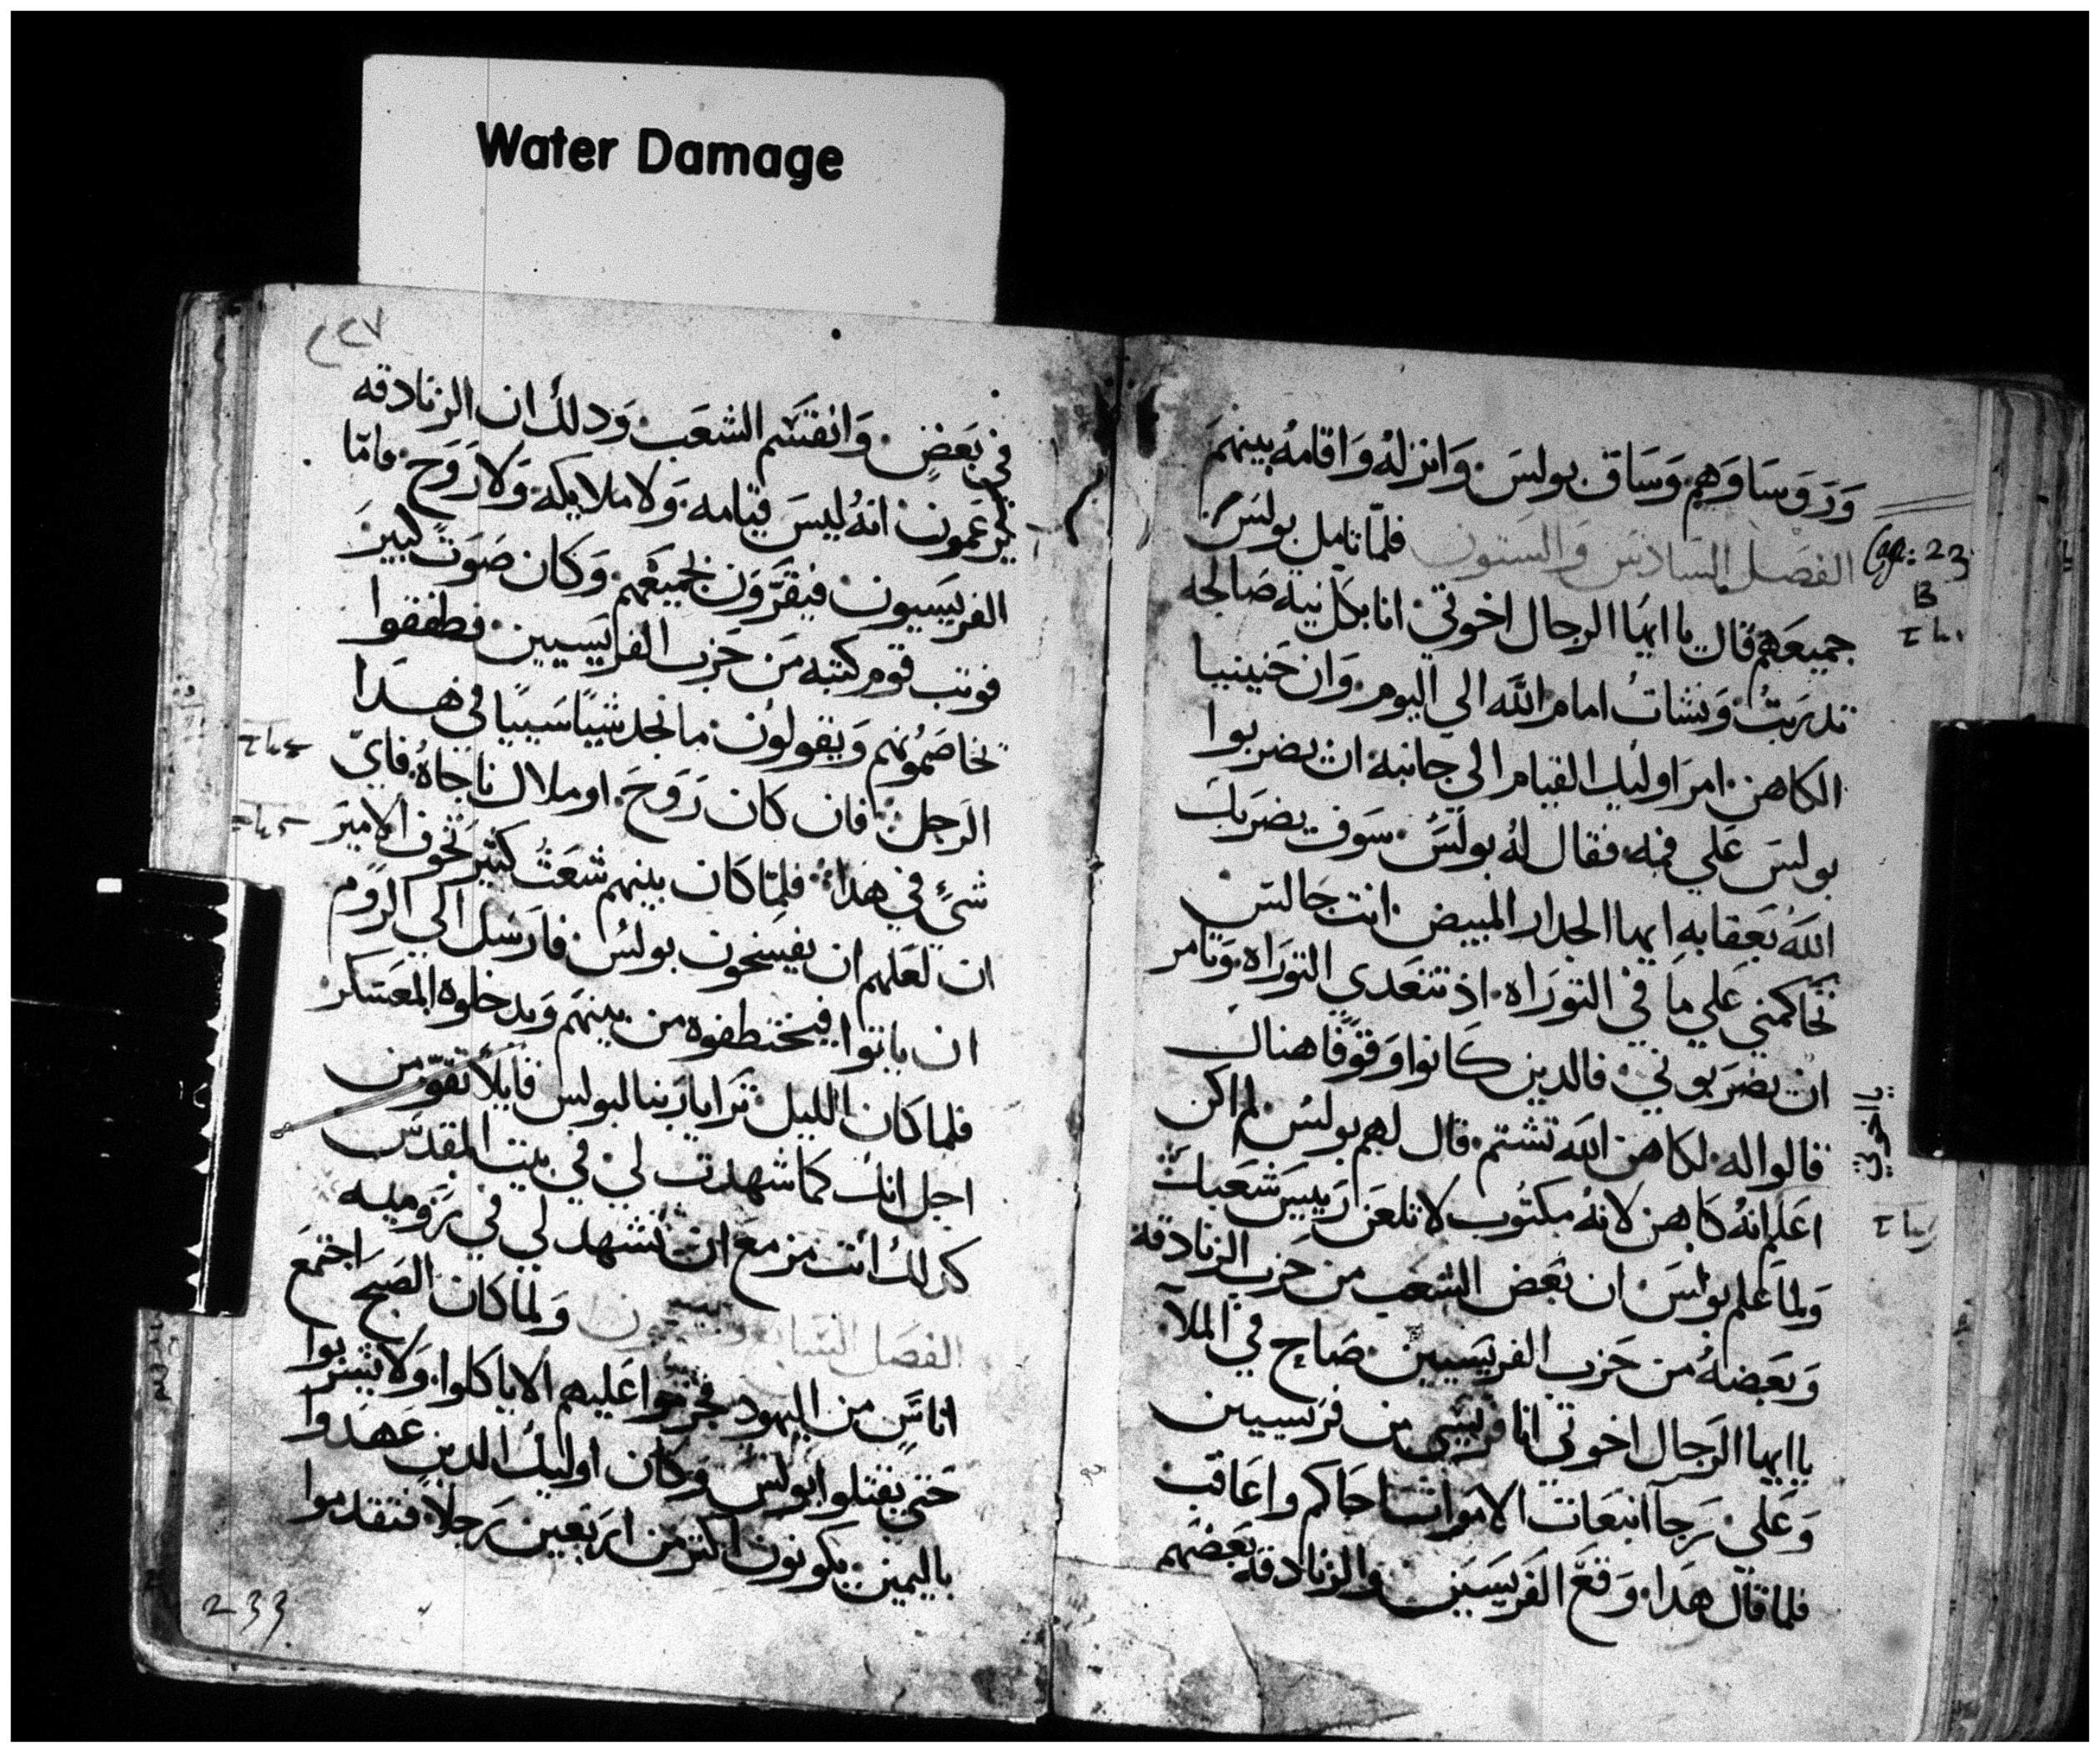 Water Damage
وروساوهم وساق بولس وانزله واقامه بينهم
الفصل السادس والستون فلما تامل بولس
جميعهم قال يا ايها الرجال اخوتي انا بكل نية صالحه
تدربت ونشات امام الله الي اليوم وان حنينيا
الكاهن امر اوليك القيام الي جانبه ان يضربوا
بولس علي فمه فقال له بولس سوف يضربك
الله بعقابه ايها الجدار المبيض انت جالس
تحاكمني علي ما في التوراه اذ تتعدي التوراه وتامر
ان يضربوني فالدين كانوا وقوفا هناك
قالوا له لكاهن الله تشتم قال لهم بولس لم اكن
اعلم انه كاهن لانه مكتوب لا تلعن رييس شعبك
ولما علم بولس ان بعض الشعب من حزب الزنادقه
وبعضه من حزب الفريسيين صاح في الملا
يا ايها الرجال اخوتي انا فريسي من فريسيين
وعلي رجا انبعاث الاموات احاكم واعاقب
فلما قال هدا وقع الفريسين والزنادقه بعضهم
Cap: 23
B
يا اخوتي
٢٢٧
في بعض وانقسم الشعب ودلك ان الزنادقه
يزعمون انه ليس قيامه ولا ملايكه ولا روح فاما
الفريسيون فيقرون بجميعهم وكان صوت كبير
فوتب قوم كتبه من حزب الفريسيين فطفقوا
تخاصمونهم ويقولون ما نجد شيا سييا في هدا
الرجل فان كان روح او ملاك ناجاه فاي
شي في هدا فلما كان بينهم شعث كثير تخوف الامير
ان لعلهم ان يفسخون بولس فارسل الي الروم
ان ياتوا فيختطفوه من بينهم ويدخلوه المعسكر
فلما كان الليل ترايا ربنا لبولس قايلا تقو من
اجل انك كما شهدت لي في بيت المقدس
كدلك انت مزمع ان تشهد لي في روميه
الفصل السابع والستون ولما كان الصبح اجتمع
اناس من اليهود فحرموا عليهم الا ياكلوا ولا يشربوا
حتي يقتلوا بولس وكان اوليك الدين عهدوا
باليمين يكونون اكتر من اربعين رجلا فتقدموا
233